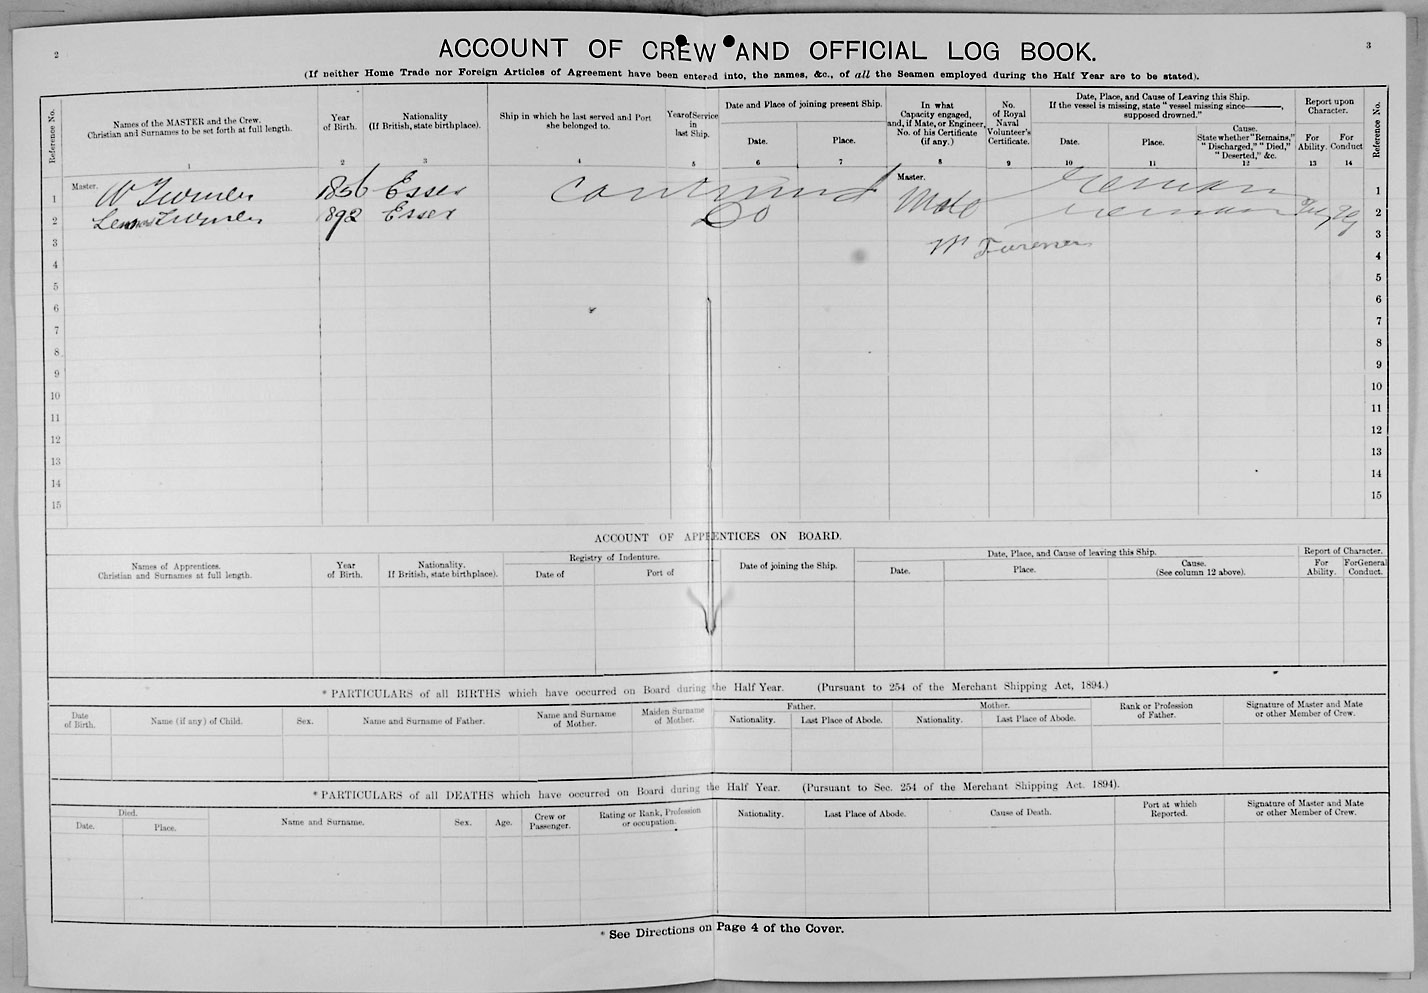 2
3
ACCOUNT OF CREW AND OFFICIAL LOG BOOK.
(If neither Home Trade nor Foreign Articles of Agreement have been entered into, the names, &c., of all the Seamen employed during the Half Year are to be stated).
Reference No.
Names of the MASTER and the Crew.
Christian and Surnames to be set forth at full length.
1
Year
of Birth.
2
Nationality
(If British, state birthplace).
3
Ship in which he last served and Port
she belonged to.
4
Year of Service
in
last Ship.
5
Date and Place of joining present Ship.
Date.
6
Place.
7
In what
Capacity engaged,
and, if Mate, or Engineer,
No. of his Certificate
(if any.)
8
No.
of Royal
Naval
Volunteer's
Certificate.
9
Date, Place, and Cause of Leaving this Ship.
If the vessel is missing, state "vessel missing since———,
supposed drowned."
Date.
10
Place.
11
Cause.
State whether "Remains,"
"Discharged," "Died,"
"Deserted," &c.
12
Report upon
Character.
For
Ability.
13
For
Conduct
14
Reference No.
1 Master. W Turner 1866 Essex continued Master. Remain 1
2 Turner 1892 Essex Do Mate Remain 2
3 3
W Turner
4 4
5 5
6 6
7 7
8 8
9 9
10 10
11 11
12 12
13 13
14 14
15 15
ACCOUNT OF APPRENTICES ON BOARD.
Names of Apprentices.
Christian and Surnames at full length.
Year
of Birth.
Nationality.
If British, state birthplace).
Registry of Indenture.
Date of
Port of
Date of joining the Ship.
Date, Place, and Cause of leaving this Ship.
Date.
Place.
Cause.
(See column 12 above).
Report of Character.
For
Ability.
For General
Conduct.
* PARTICULARS of all BIRTHS which have occurred on Board during the Half Year. (Pursuant to 254 of the Merchant Shipping Act, 1894.)
Date
of Birth.
Name (if any) of Child.
Sex.
Name and Surname of Father.
Name and Surname
of Mother.
Maiden Surname
of Mother.
Father.
Nationality.
Last Place of Abode.
Mother.
Nationality.
Last Place of Abode.
Rank or Profession
of Father.
Signature of Master and Mate
or other Member of Crew.
* PARTICULARS of all DEATHS which have occurred on Board during the Half Year. (Pursuant to Sec. 254 of the Merchant Shipping Act. 1894).
Died.
Date.
Place.
Name and Surname.
Sex.
Age.
Crew or
Passenger.
Rating or Rank, Profession
or occupation.
Nationality.
Last Place of Abode.
Cause of Death.
Port at which
Reported.
Signature of Master and Mate
or other Member of Crew.
* See Directions on Page 4 of the Cover.